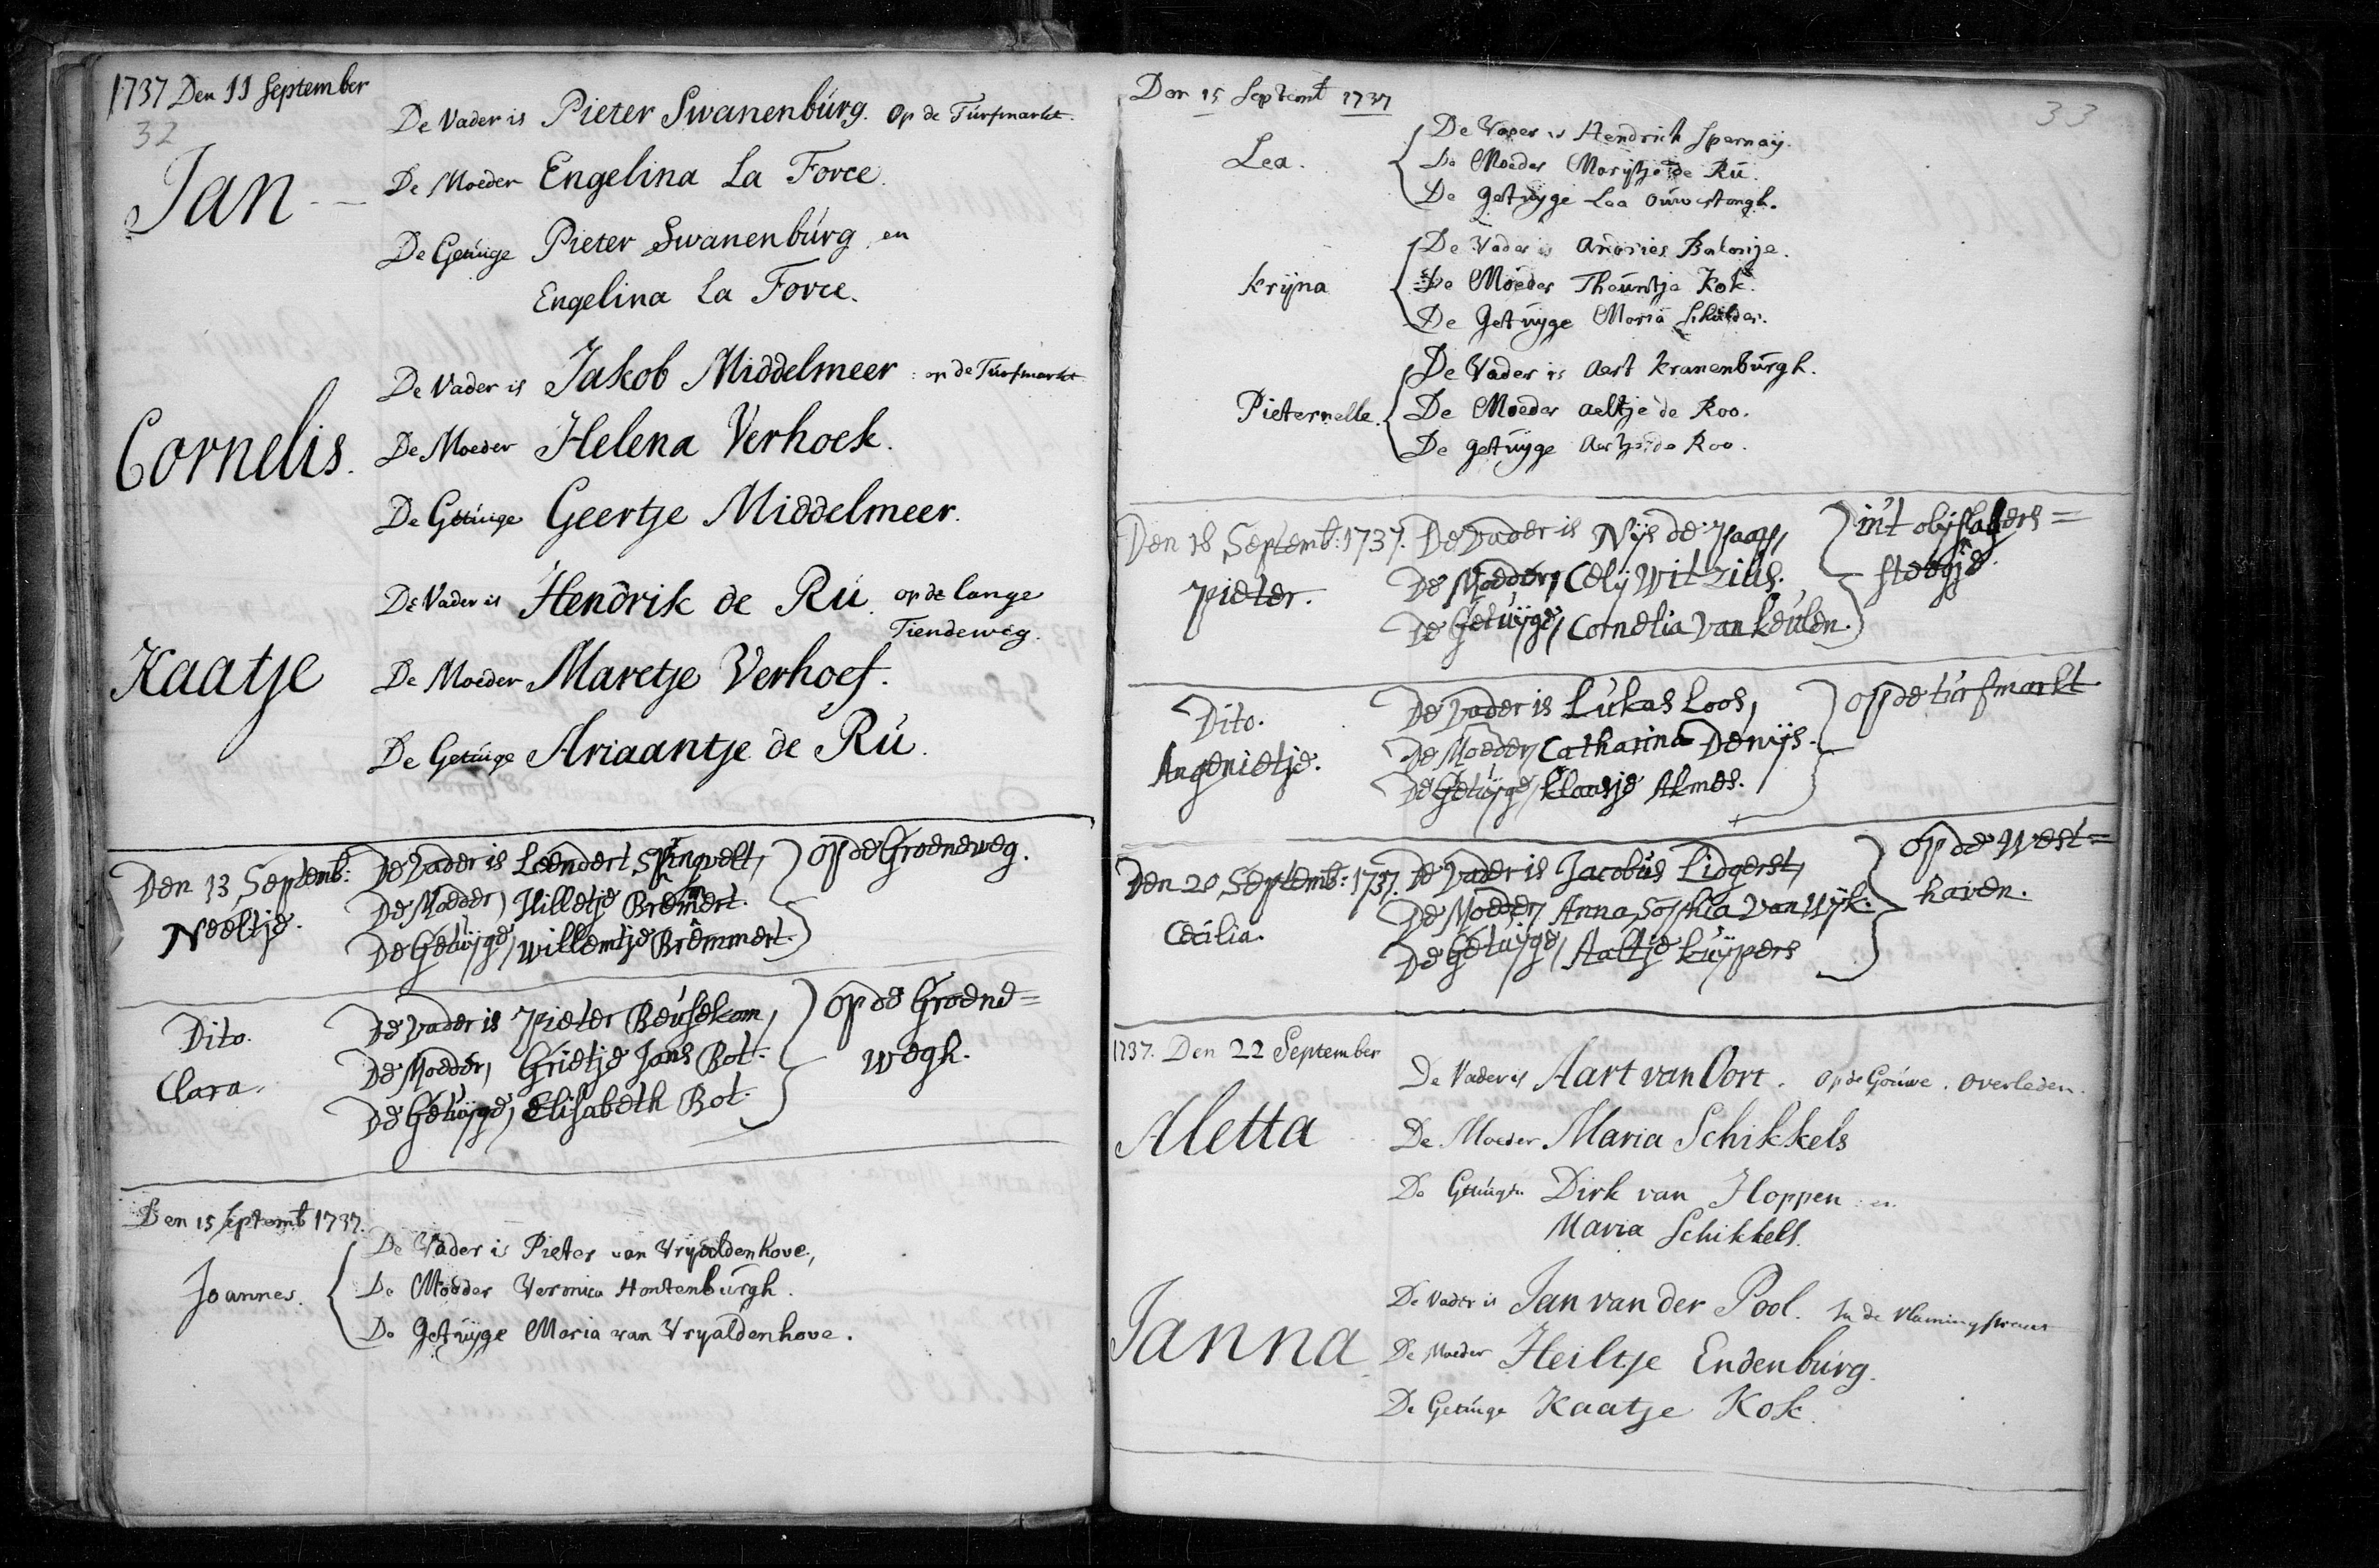 1737 Den 11 September
32
Jan
De Vader is Pieter Swanenbúrg. Op de Túrfmarkt.
De Moeder Engelina La Force.
De Getúige Pieter Swanenbúrg en
Engelina La Force.
Cornelis.
De Vader is Jakob Middelmeer : op de Túrfmarkt
De Moeder Helena Verhoek.
De Getúige Geertje Middelmeer.
Kaatje
De Vader is Hendrik de Rú. op de lange
Tiendeweg.
De Moeder Maretje Verhoef.
De Getúige Ariaantje de Rú.
Den 13 Septemb:
Neeltje.
De Vader is Leendert
De Moeder, Hilletje Bremert.
De Getúÿge, Willemtje Bremmert.
op de Groeneweg.
Dito.
Clara.
De Vader is Pieter Beúsekom,
De Moeder, Grietje Jans Bot.
De Getúÿge, Elisabeth Bot.
op de Groene=
wegh.
Den 15 Septemb 1737.
Joannes.
De Vader is Pieter van Vryaldenhove,
De Moeder Veronica Hontenbúrgh.
De Getúÿge Maria van Vryaldenhove.
Den 15 Septemb 1737
33
Lea.
De Vader is Hendrick Spernaÿ.
De Moeder Marijtje de Rú.
De Getúÿge Lea
Krijna
De Vader is Andries Batonje.
De Moeder Theúntje Kok.
De Getúÿge Maria Schilder.
Pieternelle.
De Vader is Aert Kranenbúrgh.
De Moeder Aeltje de Roo.
De getúÿge de Roo.
Den 18 Septemb: 1737.
Pieter.
De Vader is Nijs de
De Moeder, Celij Witzius.
De Getúÿge, Cornelia van Keúlen.
in't olijslagers=
steegje.
Dito.
Angenietje.
De Vader is Lúkas Loos,
De Moeder, Catharina Denijs.
De Getúÿge, Klaasje Akmes.
op de túrfmarkt
Den 20 Septemb: 1737.
Cecilia.
De Vader is Jacobús Lidgerst,
De Moeder, Anna Sophia van Wijk.
De Getúÿge, Aaltje Kúÿpers
op de West=
haven.
1737. Den 22 September
Aletta
De Vader is Aart van Oort. Op de Goúwe. overleden.
De Moeder Maria Schikkels
De Getúigen Dirk van Hoppen en
Maria Schikkels.
Janna
De Vader is Jan van der Pool. In de Vlamingstraat
De Moeder Heiltje Endenbúrg.
De Getúige Kaatje Kok.